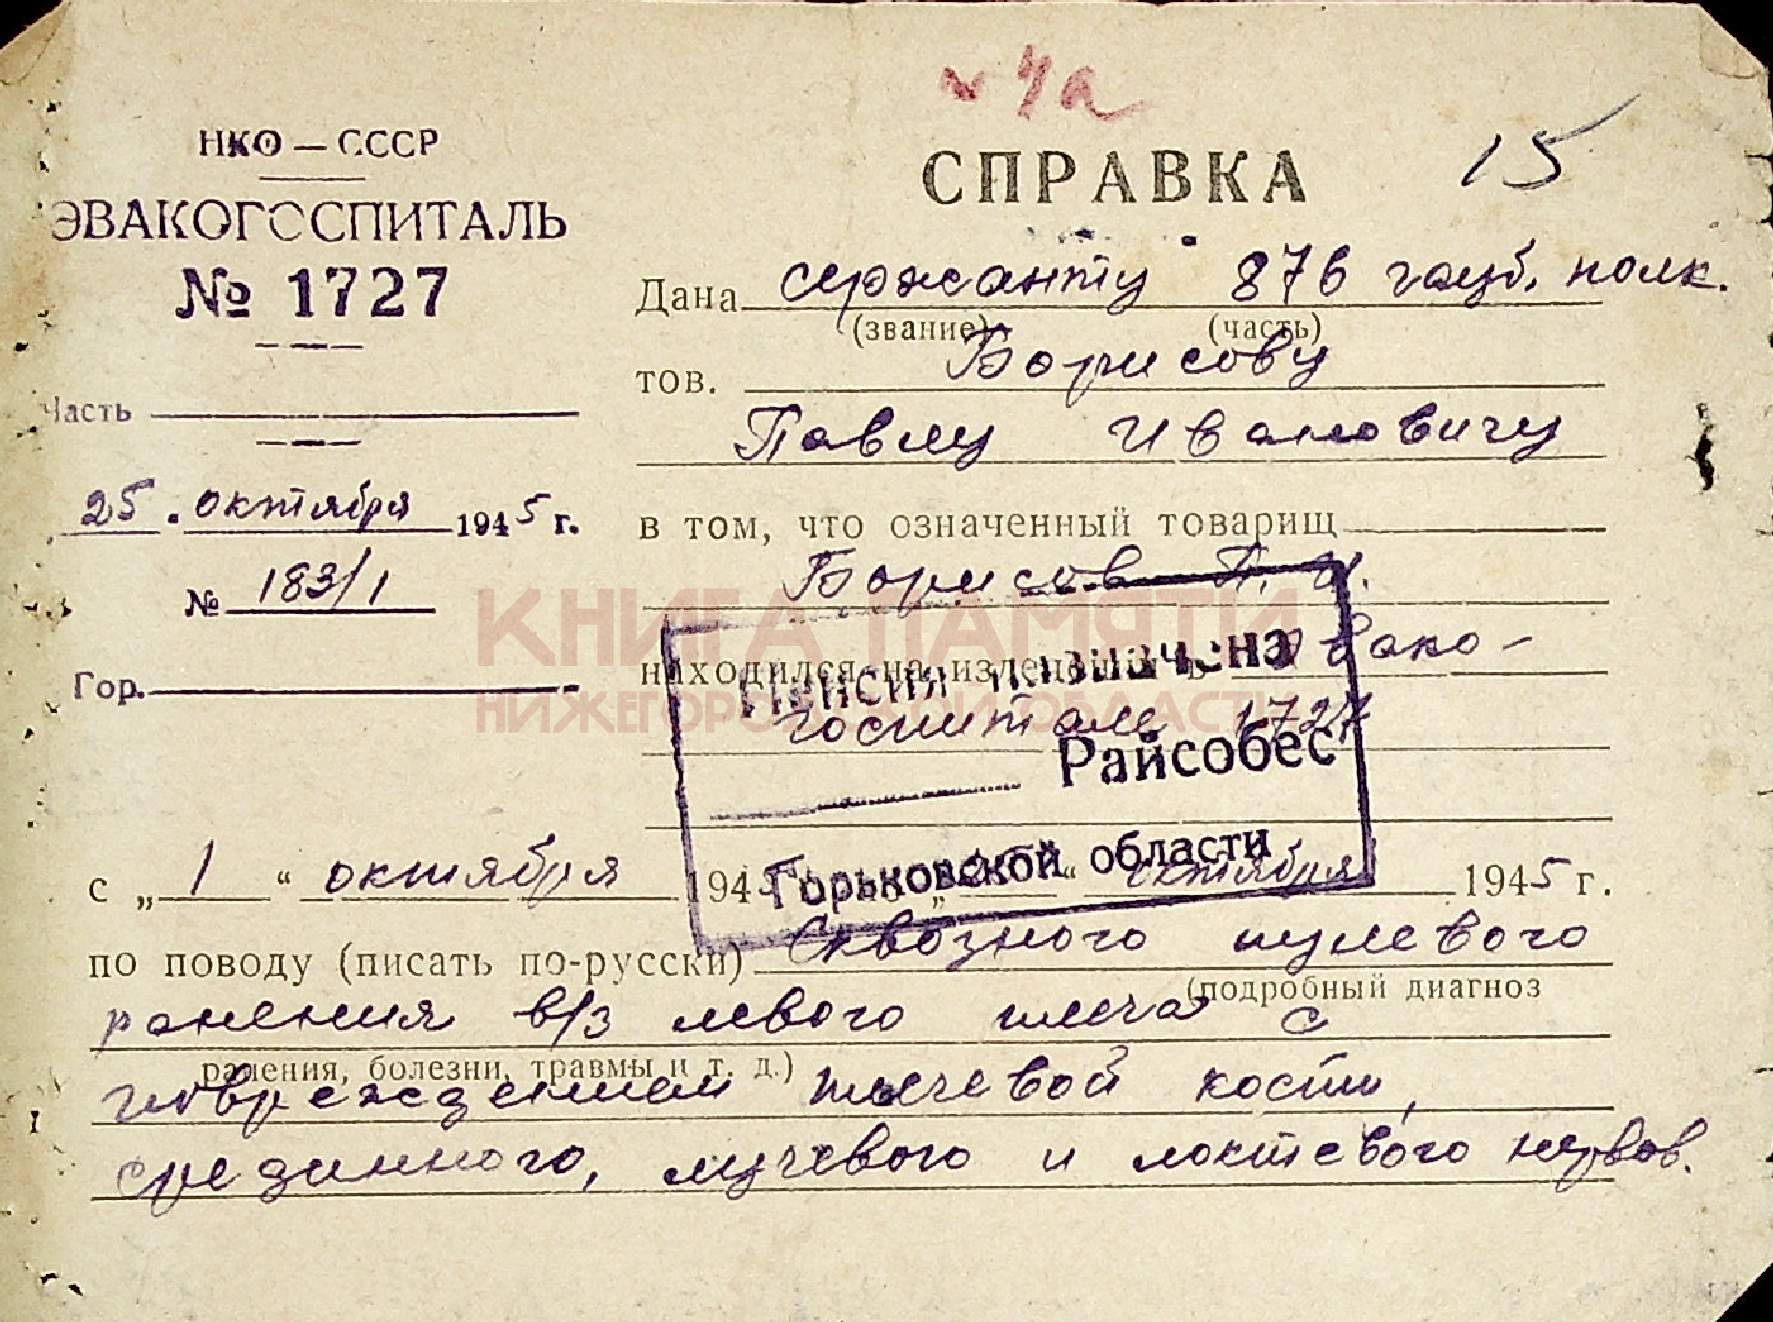 НКО — СССР
ЭВАКОГОСПИТАЛЬ
№ 1727
Часть
25. октября 1945 г.
№ 183/1
Гор.
15
СПРАВКА
Дана сержанту 876 гауб. полк.
(звание) (часть)
тов. Борисову
Павлу Ивановичу
в том, что означенный товарищ
Борисов П. И.
находился на излечении в эвако-
госпитале 1727
КНИГА ПАМЯТИ
НИЖЕГОРОДСКОЙ ОБЛАСТИ
Пенсия назначена
Райсобес
Горьковской области
с „ 1 “ октября 1945 по „ “ октября 1945 г.
по поводу (писать по-русски) Сквозного пулевого
(подробный диагноз
ранения в/з левого плеча с
ранения, болезни, травмы и т. д.)
повреждением плечевой кости,
срединного, лучевого и локтевого нервов.